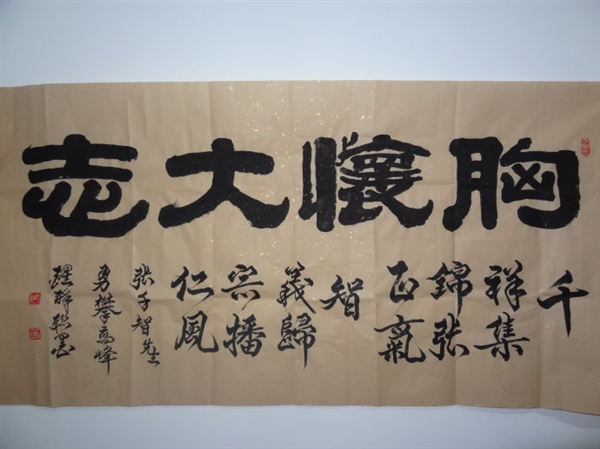 胸懷大志
千
祥集
錦張
正氣
智
義歸
宗播
仁風
張子智先生
勇攀高峰